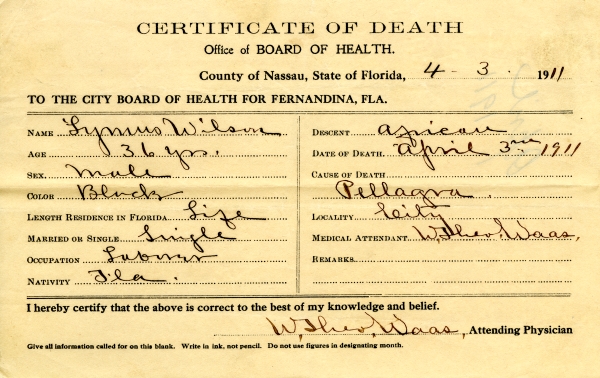 CERTIFICATE OF DEATH
Office of BOARD OF HEALTH.
County of Nassau, State of Florida, 4 - 3. 1911
TO THE CITY BOARD OF HEALTH FOR FERNANDINA, FLA.
NAME Lymus Wilson
AGE 36 yrs.
SEX. Male
COLOR Black
LENGTH RESIDENCE IN FLORIDA Life
MARRIED OR SINGLE Single
OCCUPATION Laborer
NATIVITY Fla.
DESCENT African
DATE OF DEATH. April 3rd 1911
CAUSE OF DEATH
Pellagra.
LOCALITY City
MEDICAL ATTENDANT. W. Theo. Waas,
REMARKS
I hereby certify that the above is correct to the best of my knowledge and belief.
W. Theo. Waas, Attending Physician
Give all information called for on this blank. Write in ink, not pencil. Do not use figures in designating month.